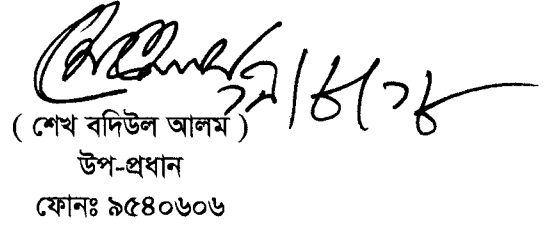 ( শেখ বদিউল আলম )
উপ-প্রধান
ফোনঃ ৯৫৪০৬০৬